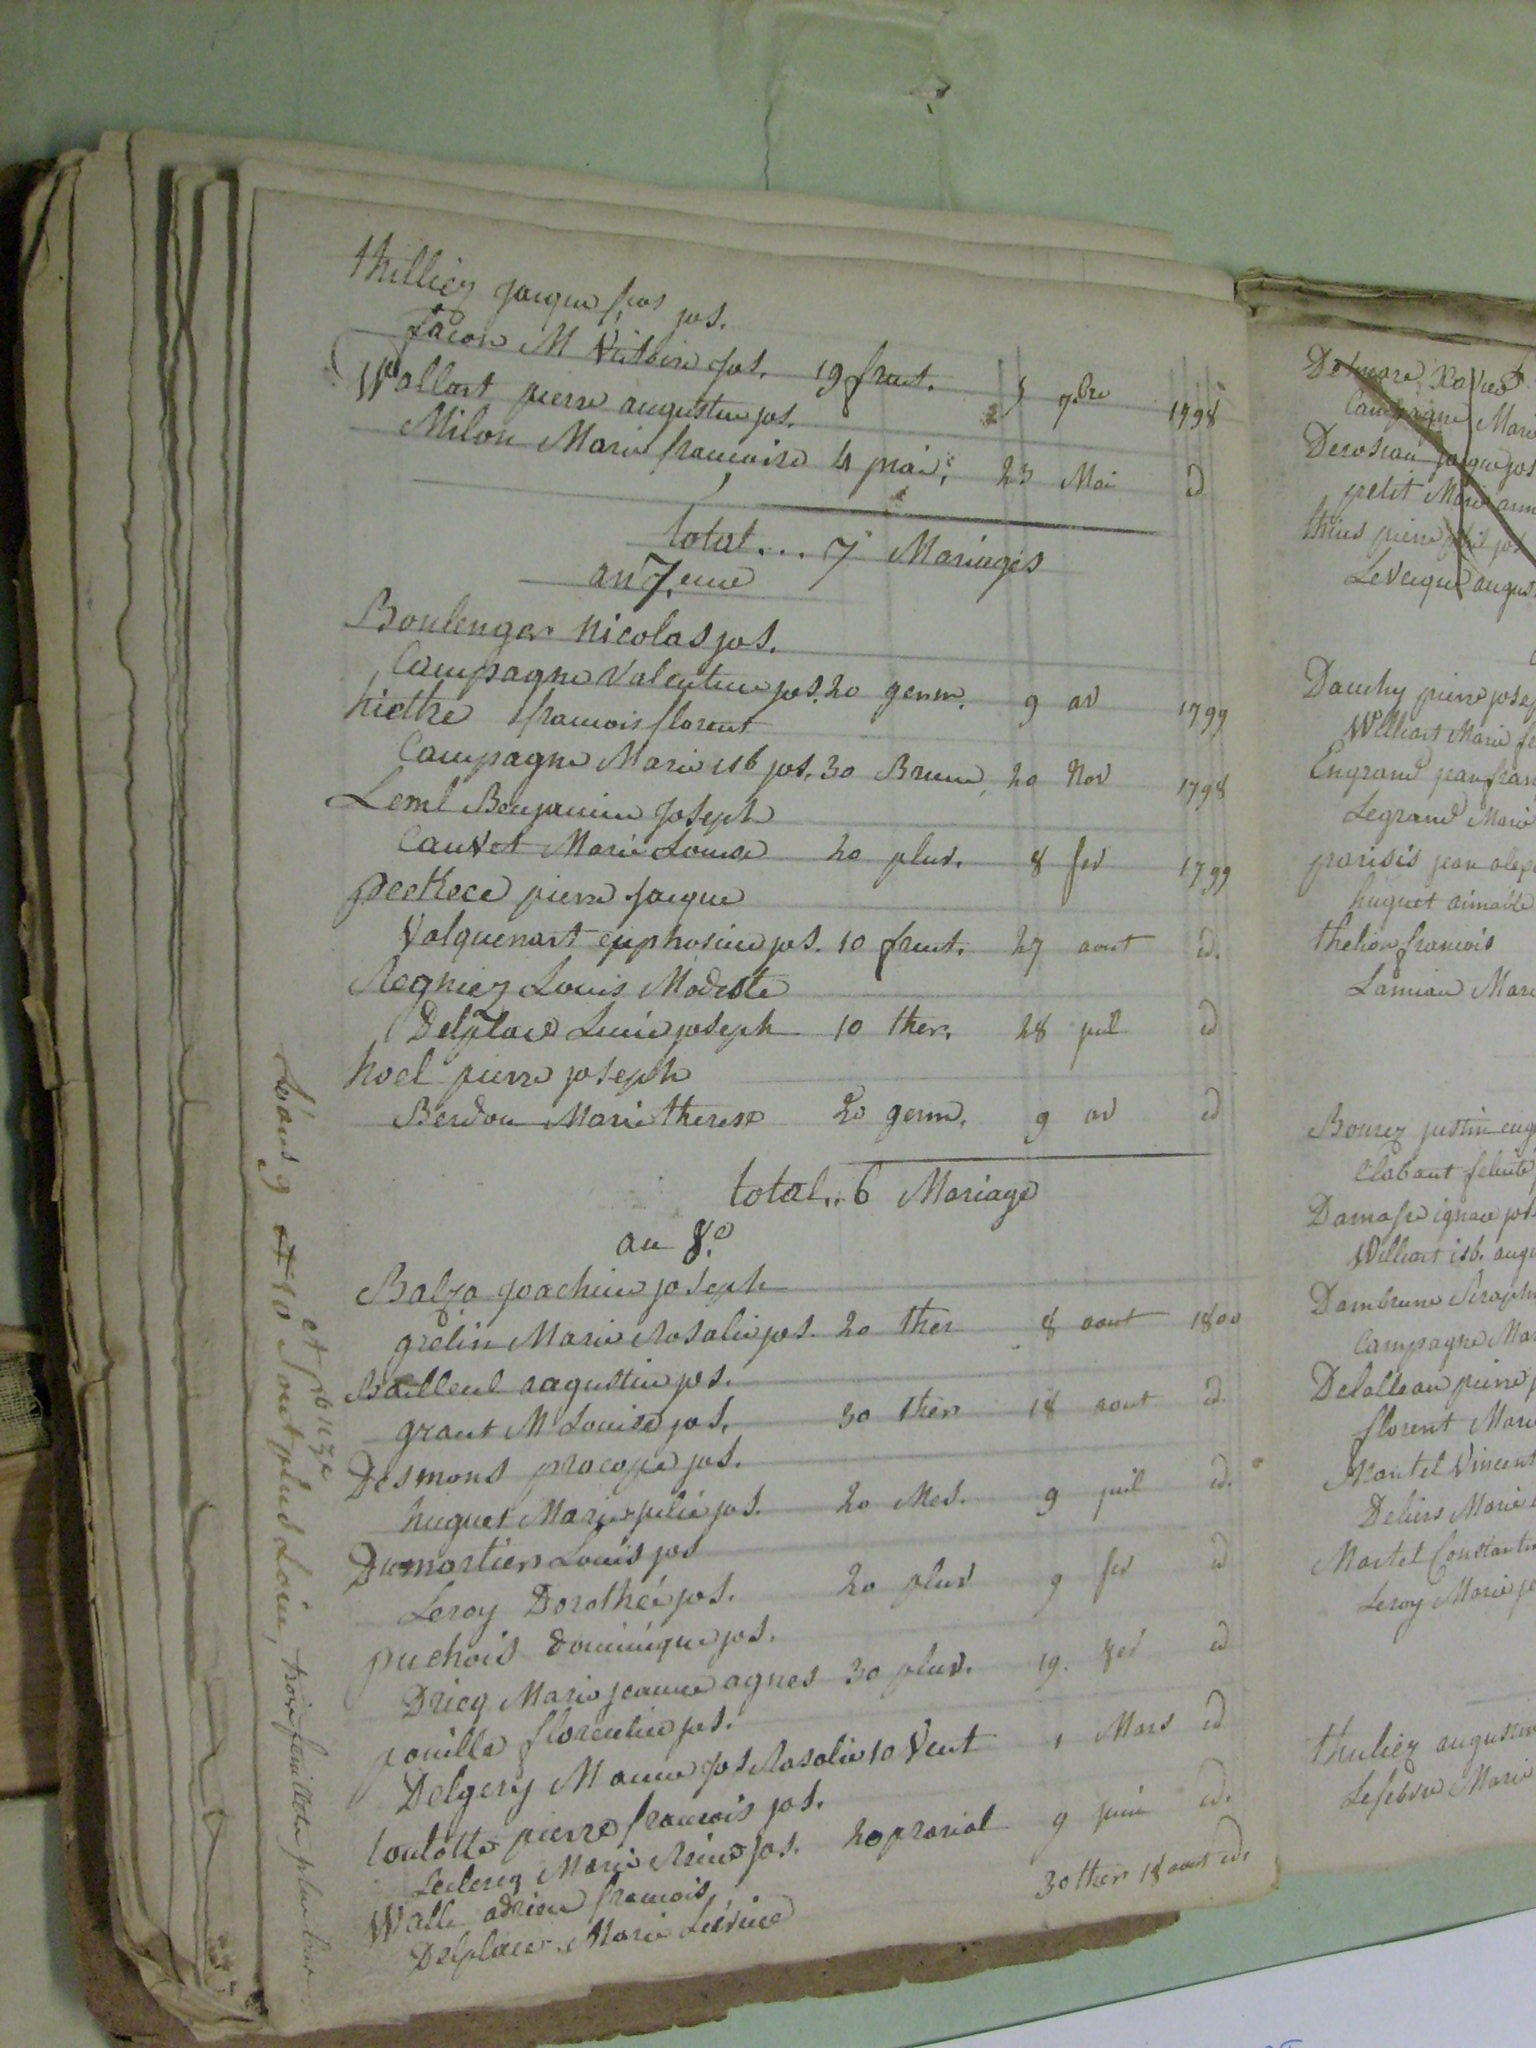 thilliez jacque fcos jos.
facon M Victoire jos. 19 fruct. 5 7bre 1798
Wallart pierre augustin jos.
Milon Marie francoise 4 prai. 23 Mai id
total... 7 Mariages
an 7.eme
Boulenger Nicolas jos.
Campagne Valentine jos. 20 germ. 9 av 1799
hiethe francois florent
Campagne Marie isb jos. 30 Brum. 20 Nov 1798
Leml Benjamin Joseph
Cauvet Marie Louise 20 pluv. 8 fev 1799
peckece pierre jacque
Valquenart euphosine jos. 10 fruct. 27 aout id.
Regniez Louis Modeste
Delplace Lucie joseph 10 ther. 28 juil id
hoel pierre joseph
Berdou Marie therese 20 germ. 9 av id
total.. 6 Mariage
an 8.e
Balza joachim joseph
grelin Marie Rosalie jos. 20 ther 8 aout 1800
Bailleul augustin jos.
graut M Louise jos. 30 ther 18 aout id.
Desmons procope jos.
huguet Marie julie jos. 20 Mes. 9 juil id.
Dumortier Louis jos
Leroy Dorothée jos. 20 pluv 9 fev id
puchois dominique jos.
Dricq Marie jeanne agnes 30 pluv. 19. fev id
pouille florentin jos.
Delgery M anne jos Rosalie 10 Vent 1 Mars id
toulotte pierre francois jos.
Leclercq Marie Reine jos. 20 prarial 9 juin id.
Walle adrien francois
Delplace Marie Lievine 30 ther 18 aout id.
L'an 9 et 10 sont plus Loin, trois feuillets plus bas
et 11 12e
Delmare Xavier
Campagne Marie
Derosiau jacque jos
petit Marie ann
thius pierre jos
Leveque augus
Dauchy pierre josep
Willart Marie fr
Engrand jean fran
Legrand Marie
parisis jean alex
huguet aimable
thelion francois
Lamiau Mari
Bourez justin eug
Clabaut felicité
Damase ignace jos
Willart isb. augu
Dambrune Seraphi
Campagne Mar
Delalleau pierre j
florent Mari
Martel Vincent
Deliers Marie
Martel Constantin
Leroy Marie je
thuliez augustin
Lefebvre Marie